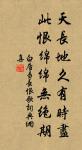 天長地久有時盡
此恨綿綿無絕期
白居易長恨歌訂典網